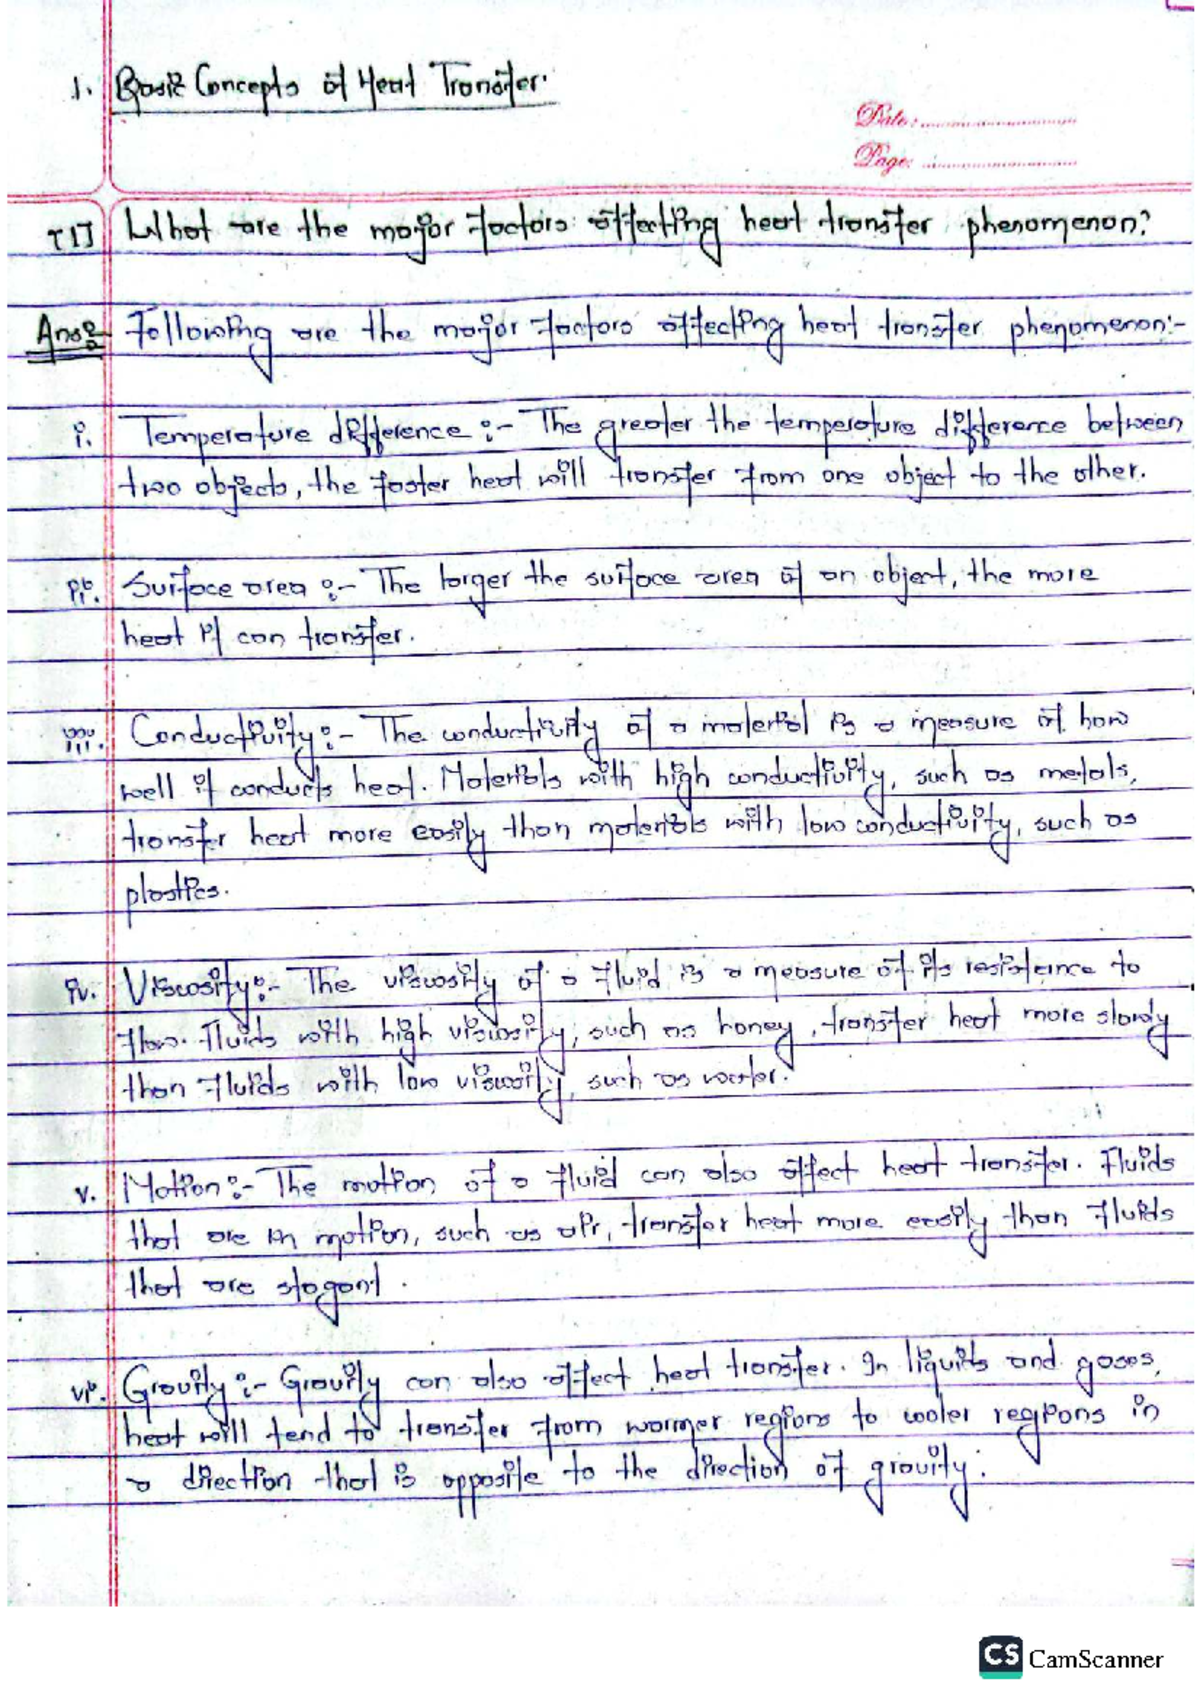 1. Basic Concepts of Heat Transfer.
Date:
Page:
[1] What are the major factors affecting heat transfer phenomenon?
Ans: Following are the major factors affecting heat transfer phenomenon:-
i. Temperature difference :- The greater the temperature difference between
two objects, the faster heat will transfer from one object to the other.
ii. Surface area :- The larger the surface area of an object, the more
heat it can transfer.
iii. Conductivity:- The conductivity of a material is a measure of how
well it conducts heat. Materials with high conductivity, such as metals,
transfer heat more easily than materials with low conductivity, such as
plastics.
iv. Viscosity:- The viscosity of a fluid is a measure of its resistance to
flow. Fluids with high viscosity, such as honey, transfer heat more slowly
than fluids with low viscosity, such as water.
v. Motion:- The motion of a fluid can also affect heat transfer. Fluids
that are in motion, such as air, transfer heat more easily than fluids
that are stagant.
vi. Gravity:- Gravity can also affect heat transfer. In liquids and gases,
heat will tend to transfer from warmer regions to cooler regions in
a direction that is opposite to the direction of gravity.
CS CamScanner